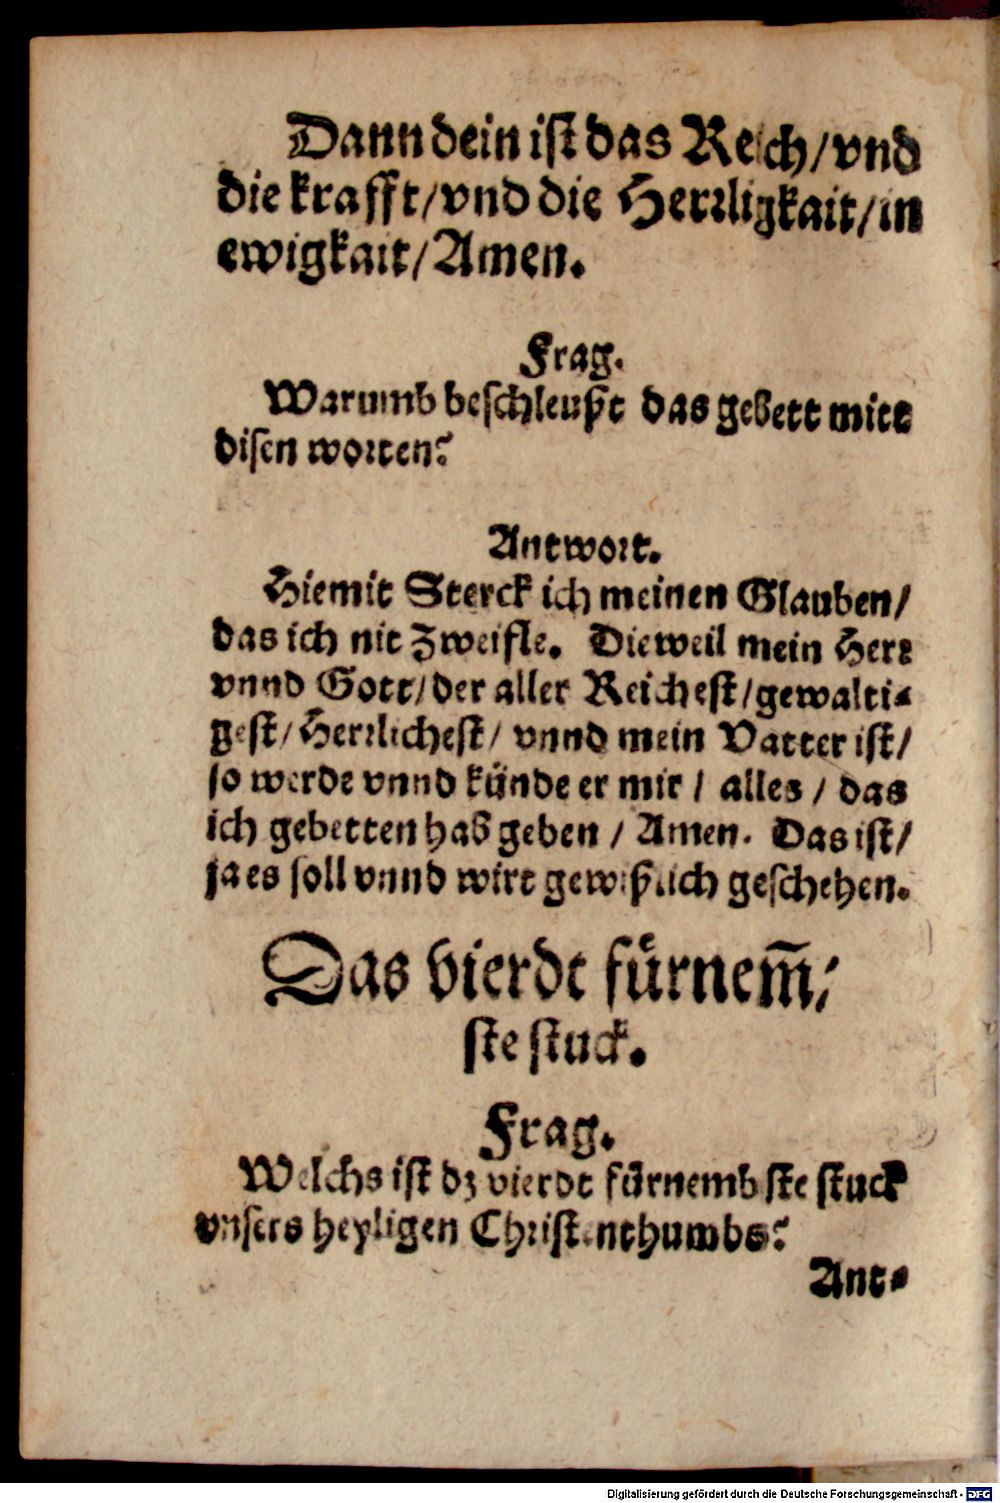 Dann dein ist das Reich/vnd
die krafft/vnd die Herrligkait/in
ewigkait/Amen.
Frag.
Warumb beschleußt das gebett mitt
disen worten?
Antwort.
Hiemit Sterck ich meinen Glauben/
das ich nit Zweifle. Dieweil mein Herr
vnnd Gott/der aller Reichest/gewalti-
gest/Herrlichest/ vnnd mein Vatter ist/
so werde vnnd künde er mir / alles / das
ich gebetten hab geben / Amen. Das ist/
ja es soll vnnd wirt gewißlich geschehen.
Das vierdt fürnem̃-
ste stuck.
Frag.
Welchs ist dz vierdt fürnembste stuck
vnsers heyligen Christenthumbs?
Ant-
Digitalisierung gefördert durch die Deutsche Forschungsgemeinschaft - DFG